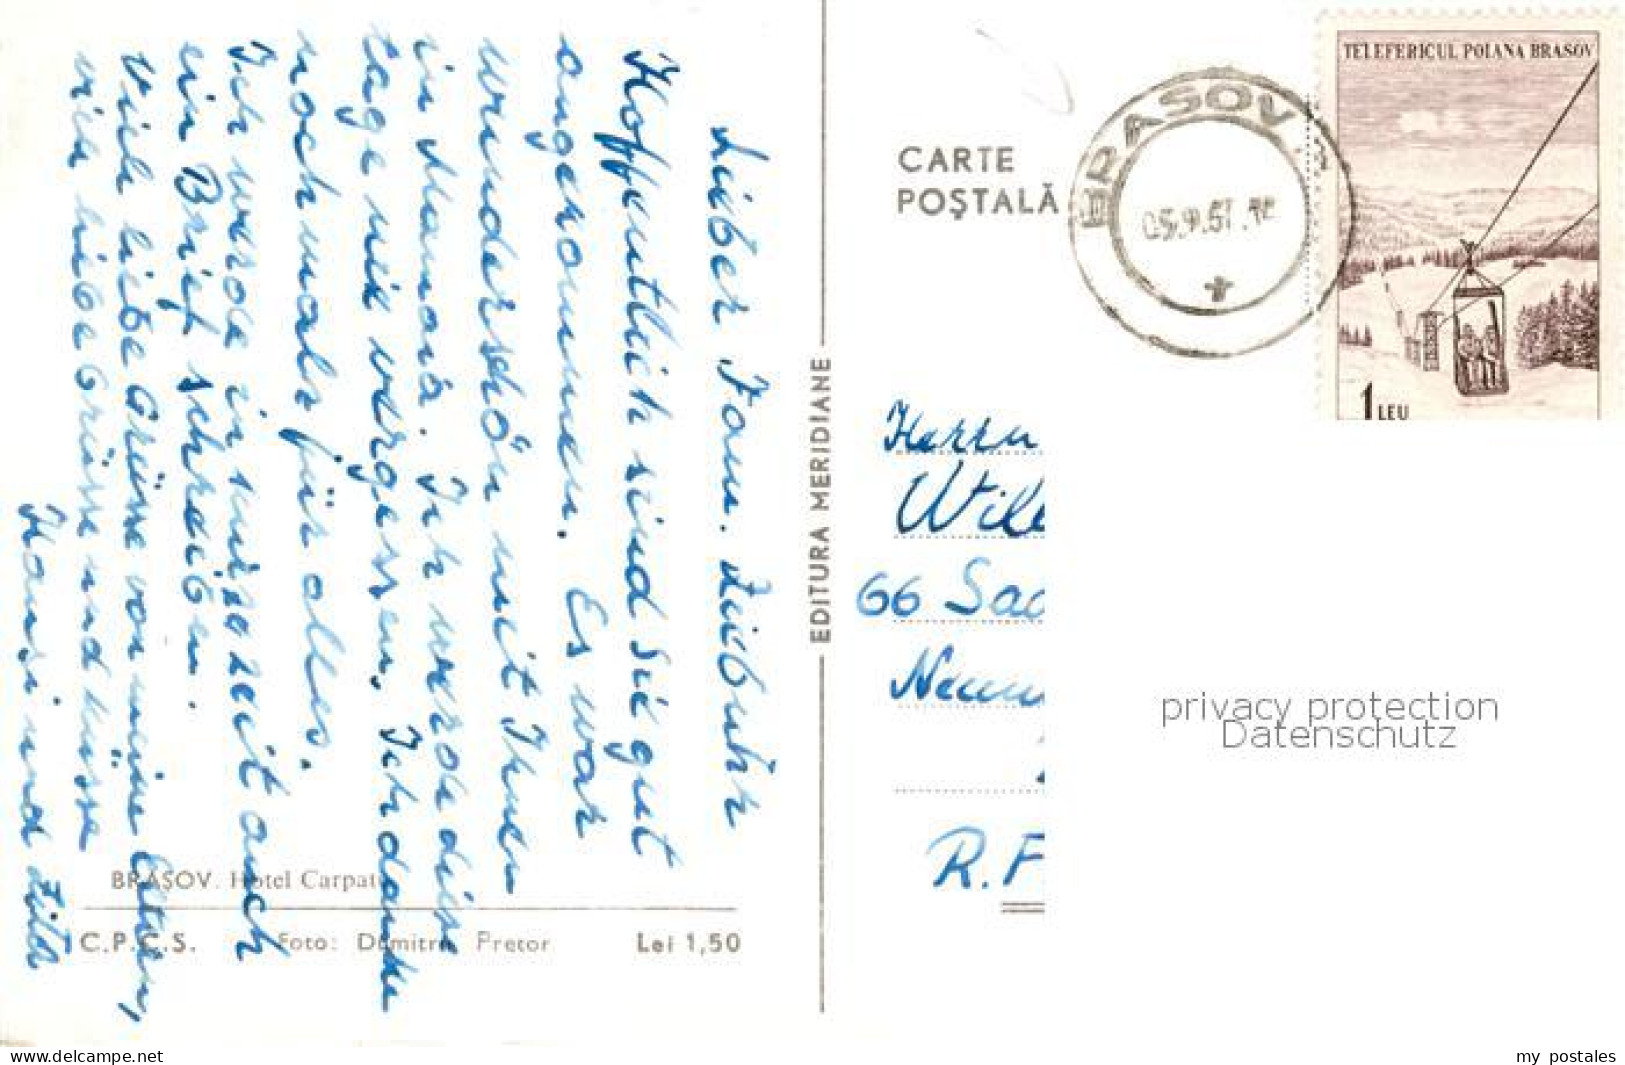 Lieber Fam. Liebuhr
Hoffentlich sind Sie gut
angekommen. Es war
wunderschön mit Ihnen
in Mamaia. Ich werde diese
tage nie vergessen. Ich danke
nochmals für alles.
Ich werde in kürze zeit auch
ein Brief schreiben.
Viele liebe Grüsse von meine Eltern,
viele liebe Grüsse und küsse
Hansi und
BRAŞOV. Hotel Carpați
C.P.C.S. Foto: Dumitru Pretor Lei 1,50
EDITURA MERIDIANE
CARTE
POŞTALĂ
BRASOV
TELEFERICUL POIANA BRASOV
1 LEU
Herrn
66 Saa
R. F
privacy protection
Datenschutz
www.delcampe.net
my_postales